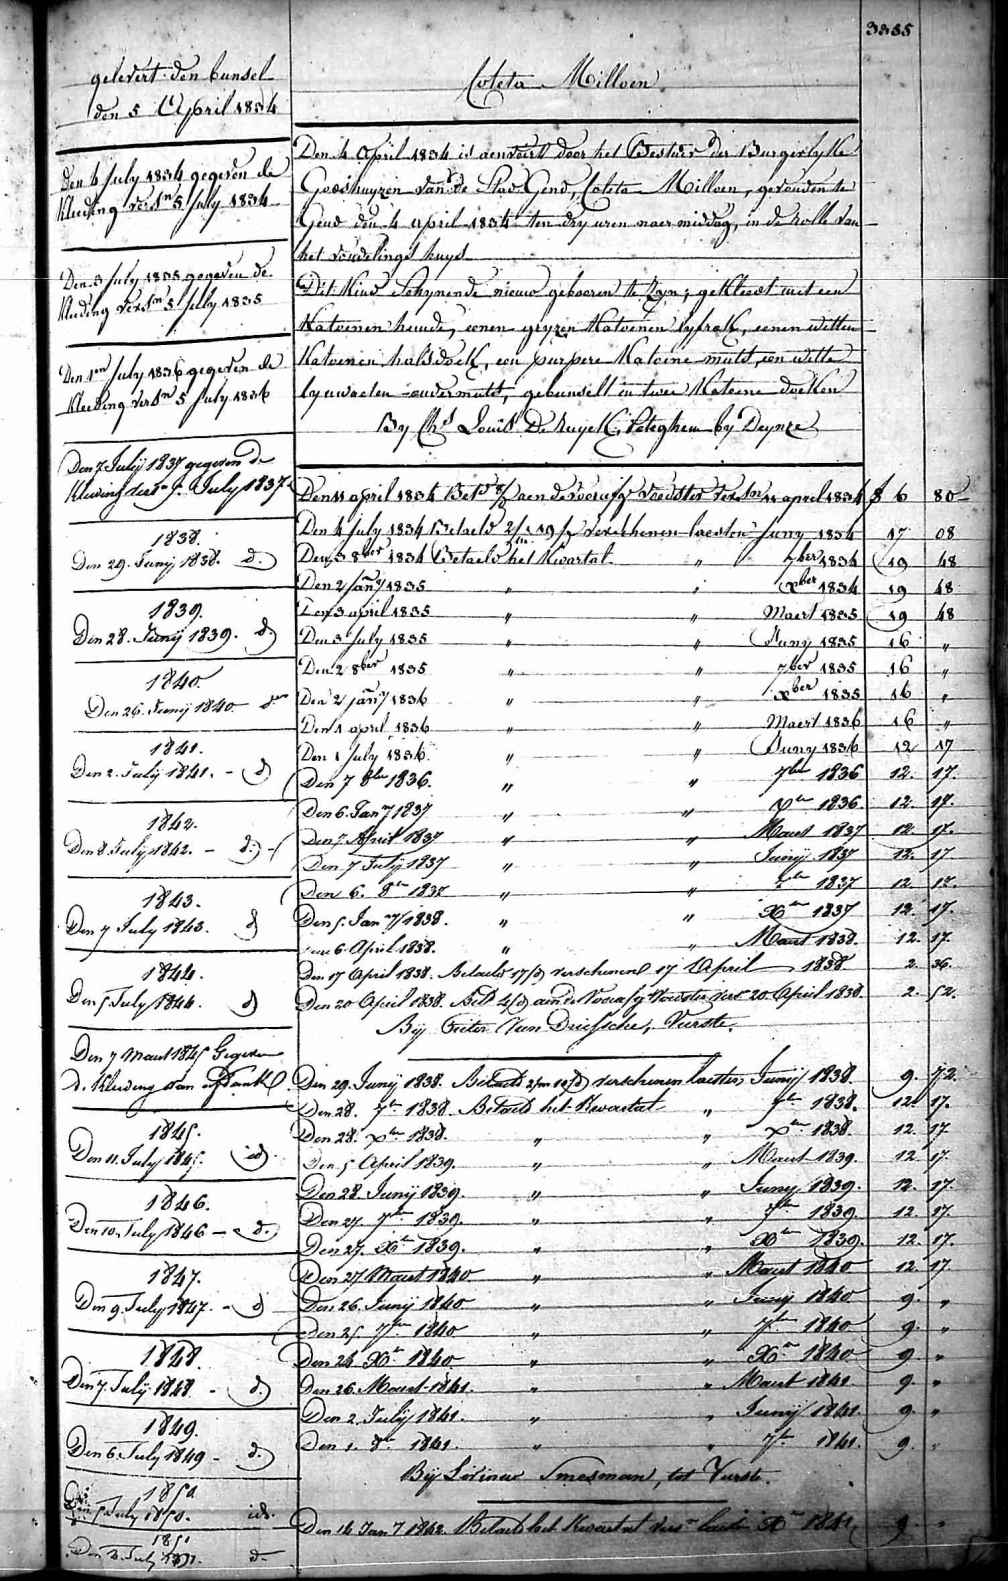 3335
gelevert den bunsel
den 5 April 1834
Den 4 July 1834 gegeven de
kleeding vers.en 5 July 1834
Den 3 July 1835 gegeven de
kleeding vers.en 5 July 1835
Den 1.en July 1836 gegeven de
kleeding vers.en 5 July 1836
Den 7 Julij 1837 gegeven de
kleeding July 1837
1838.
Den 29. Junij 1838. d.
1839.
Den 28. Junij 1839. d
1840.
Den 26. Junij 1840
1841.
Den 2. Julij 1841. - d
1842.
Den 8. July 1842. - d. -
1843.
Den 7 July 1843. d
1844.
Den 5 July 1844. d
Den 7 Maert 1845 Gegeven
d. kleeding van
1845.
Den 11. July 1845. id.
1846.
Den 10. July 1846 - d.
1847.
Den 9. July 1847. - d
1848.
Den 7. Julij 1848. - d.
1849.
Den 6. July 1849 - d.
1850
Den 5 July 1850. id.
1851
Den 3. July 1851. d.
Coleta Milloen
Den 4 April 1834 is aenveert door het Bestier der Burgerlyke
Godshuyzen van de Stad Gend, Coleta Milloen, gevonden te
Gend den 4 april 1834 ten dry uren naer middag, in de rolle van
het vondelings huys
Dit Kind Schynende nieuw gebooren te zyn, gekleed met een
Katoenen hemde, eenen gryzen Katoenen lyfrok, eenen witten
Katoenen halsdoek, een purpere Katoene muts, een witte
lynwaeten ondermuts, gebunselt in twee Katoene doeken
By Ch.s Louis De Ruyck, Peteghem by Deynze
Den 11 april 1834 Bet.d aen de voorafge voedster vers.en 11 april 1834 f 6 80
Den 4 July 1834 Betaeld verschenen laesten Juny 1834 17 08
Den 3 8ber 1834 Betaeld het Kwartal " 7ber 1834 19 48
Den 2 jany 1835 " " xber 1834 19 48
Den 3 april 1835 " " Maert 1835 19 48
Den 3 July 1835 " " Juny 1835 16 "
Den 2 8ber 1835 " " 7ber 1835 16 "
Den 2 jany 1836 " " xber 1835 16 "
Den 1 april 1836 " " Maert 1836 16 "
Den 1 July 1836. " " Juny 1836 12 17
Den 7 8bre 1836. " " 7bre 1836 12. 17.
Den 6. Jany 1837 " " Xbre 1836. 12. 17.
Den 7. April 1837 " " Maert 1837 12. 17.
Den 7 July 1837 " " Junij 1837 12. 17
Den 6. 8bre 1837 " " 7bre 1837 12. 17.
Den 5. Jany 1838. " " Xbre 1837 12. 17.
Den 6 April 1838. " " Maert 1838. 12. 17.
Den 17 April 1838. Betaeld 17/d verschenen 17 April 1838 2. 36.
Den 20 April 1838. Bet.d 4/d aen de Voorafg Voedster vers 20 April 1838 2. 52.
Bij Pieter Van Driessche, Vurste.
Den 29. Junij 1838. Betaeld verschenen laesten Junij 1838. 9. 72.
Den 28. 7bre 1838. Betaeld het Kwartal " 7bre 1838. 12. 17.
Den 28. Xbre 1838. " " Xbre 1838. 12. 17
Den 5 April 1839. " " Maert 1839. 12. 17
Den 28. Junij 1839. " " Junij 1839. 12. 17.
Den 27. 7bre 1839. " " 7bre 1839. 12. 17.
Den 27. Xbre 1839. " " Xbre 1839. 12. 17.
Den 27 Maert 1840 " " Maert 1840 12. 17.
Den 26. Junij 1840 " " Junij 1840 9. "
Den 25. 7bre 1840 " " 7bre 1840 9. "
Den 24 Xbre 1840 " " Xbre 1840 9. "
Den 26. Maert 1841. " " Maert 1841 9. "
Den 2. Julij 1841. " " Junij 1841. 9. "
Den 1. 8bre 1841. " " 7bre 1841. 9. "
Bij Livinus Smesman, tot Vurste.
Den 14 Jany 1842. Betaeld het Kwartal vers.n laest Xbre 1841 9 "